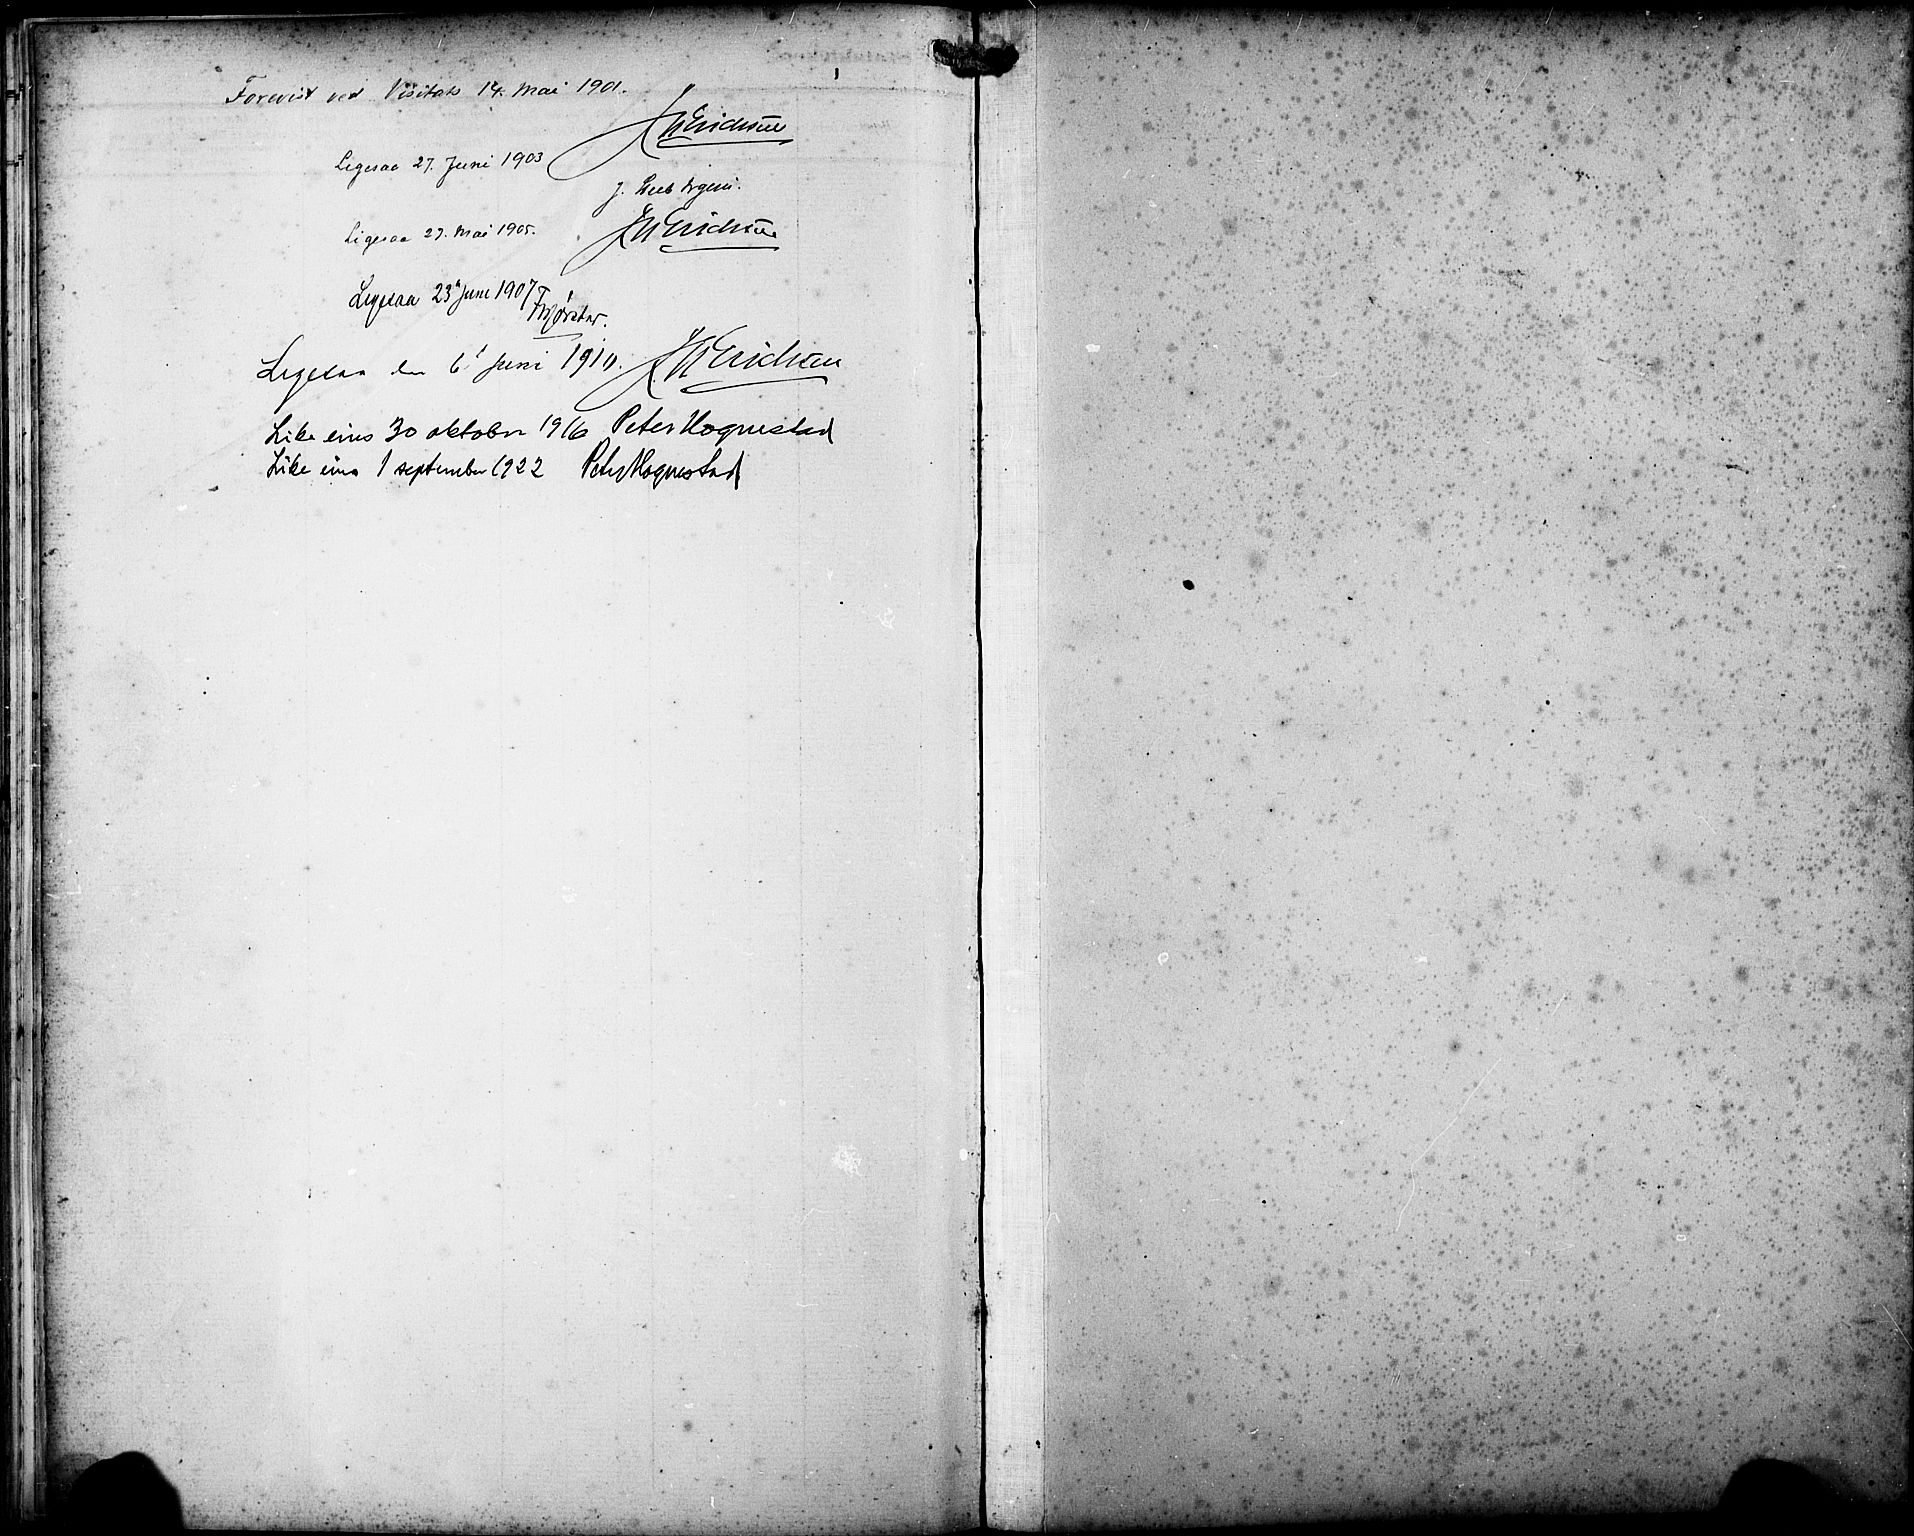 Forevist ved Visitats 14. Mai 1901.
J W Erichsen
Ligesaa 27. Juni 1903
J.
Ligesaa 27. Mai 1905.
J W Erichsen
Ligesaa 23' Juni 1907
Ligesaa den 6' Juni 1910. J W Erichsen
Like eins 30 oktober 1916 Peter Hognestad
Like eins 1 september 1922 Peter Hognestad